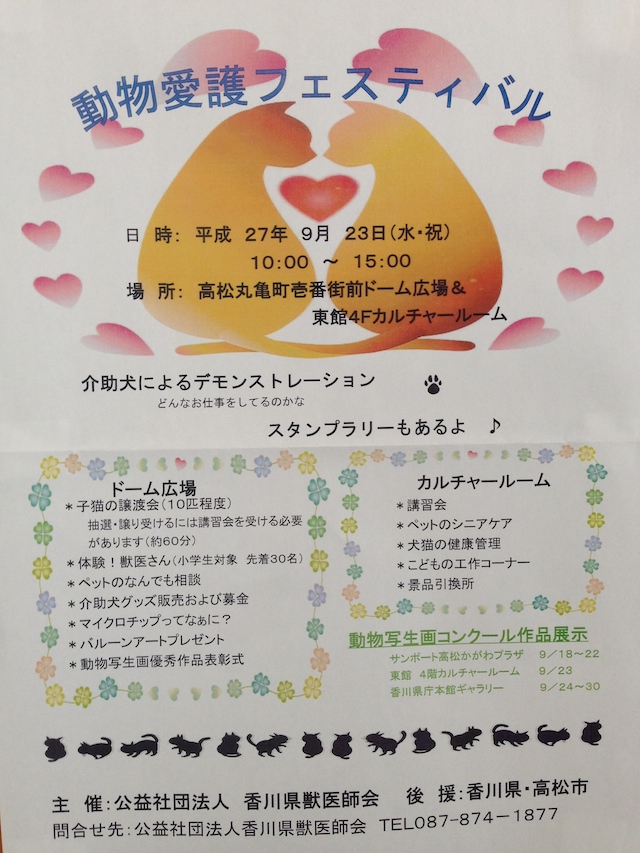 動物愛護フェスティバル
日 時： 平成 27年 9月 23日（水・祝）
10:00 ～ 15:00
場 所： 高松丸亀町壱番街前ドーム広場＆
東館4Fカルチャールーム
介助犬によるデモンストレーション
どんなお仕事をしてるのかな
スタンプラリーもあるよ ♪
ドーム広場
＊子猫の譲渡会（10匹程度）
抽選・譲り受けるには講習会を受ける必要
があります（約60分）
＊体験！獣医さん（小学生対象 先着30名）
＊ペットのなんでも相談
＊介助犬グッズ販売および募金
＊マイクロチップってなぁに？
＊バルーンアートプレゼント
＊動物写生画優秀作品表彰式
カルチャールーム
＊講習会
＊ペットのシニアケア
＊犬猫の健康管理
＊こどもの工作コーナー
＊景品引換所
動物写生画コンクール作品展示
サンポート高松かがわプラザ 9／18～22
東館 4階カルチャールーム 9／23
香川県庁本館ギャラリー 9／24～30
主 催：公益社団法人 香川県獣医師会 後 援：香川県・高松市
問合せ先：公益社団法人香川県獣医師会 TEL087-874-1877